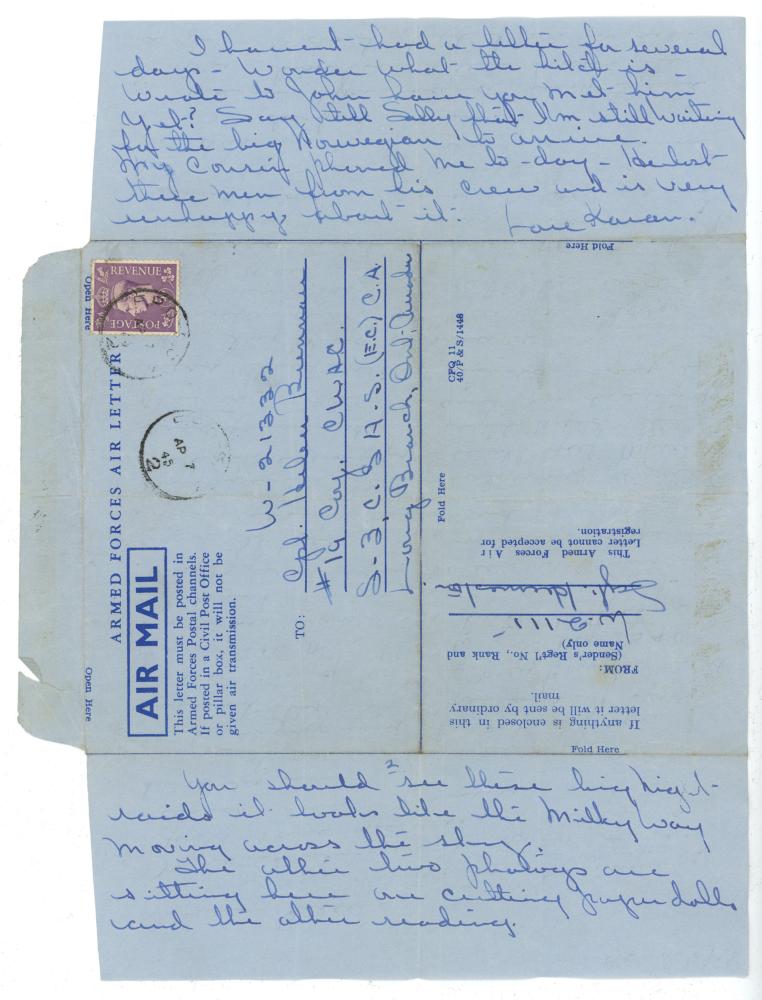 I havent had a letter for several
days – Wonder what the hitch is
Wrote to John have you met him
yet? Say, tell Sally that I'm still waiting
for the big Norwegian to arrive.
My cousin phoned me to-day – He lost
three men from his crew and is very
unhappy about it.
Love Karen.
Fold Here
Open Here
REVENUE
POSTAGE
AP 7
45
2
ARMED FORCES AIR LETTER
AIR MAIL
This letter must be posted in
Armed Forces Postal channels.
If posted in a Civil Post Office
or pillar box, it will not be
given air transmission.
Open Here
TO:
W-21332
Cpl. Helen Brennan
#19 Coy. CWAC.
S-3, C.S.A.S. (E.C.) C.A.
Long Branch, Ont. Canada
CFQ 11
40/P & S/1448
Fold Here
This Armed Forces Air
Letter cannot be accepted for
registration.
Sgt.
W-2111
(Sender's Reg't'l No., Rank and
Name only)
FROM:
If anything is enclosed in this
letter it will be sent by ordinary
mail.
Fold Here
2
You should see these big night
raids it looks like the Milky Way
moving across the sky.
The other two photogs are
sitting here one cutting paper dolls
and the other reading.